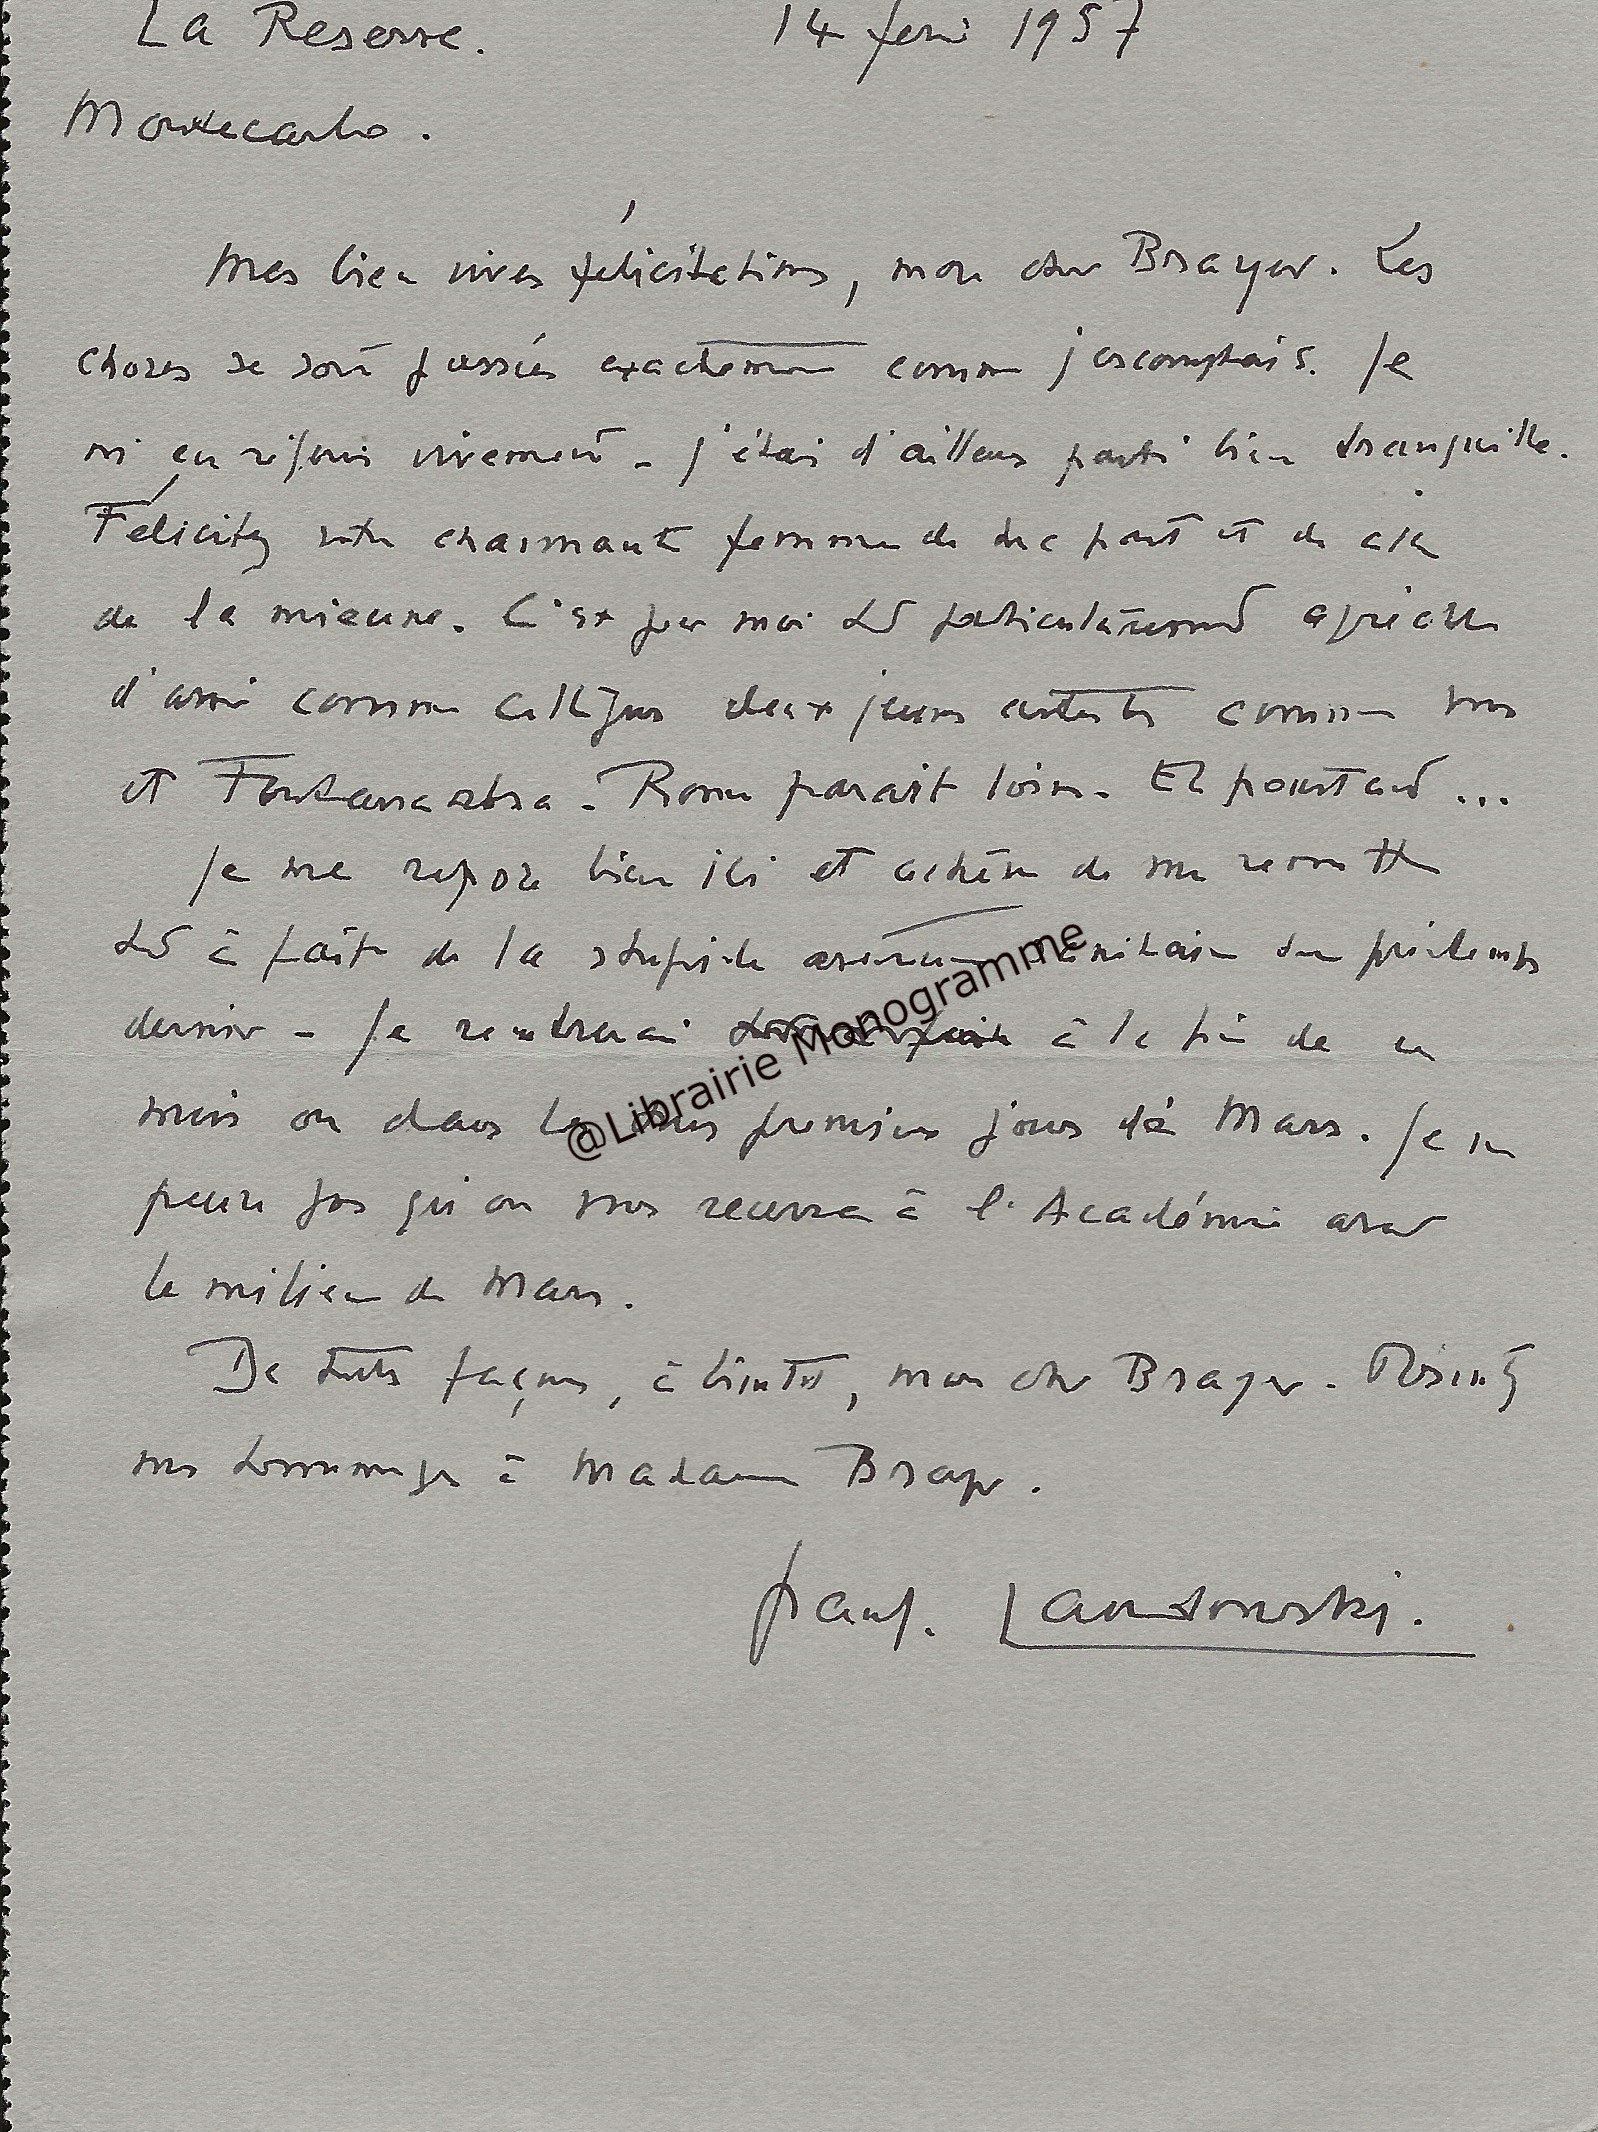 La Reserve. 14 fevri 1957
Montecarlo.
Mes bien vives félicitations, mon cher Brayer. Les
choses se sont passées exactement comme j'escomptais. Je
m'en réjouis vivement - j'étais d'ailleurs parti bien tranquille.
Félicitez votre charmante femme de ma part et de celle
de la mienne. C'est pour moi tout particulièrement
d'avoir comme collègues deux jeunes artistes comme vous
et Fontanarosa. Rome parait loin. Et pourtant ...
Je me repose bien ici et achève de me remettre
tout à fait de la stupide aventure sanitaire du printemps
dernier - Je rentrerai à la fin de ce
mois ou dans les tous premiers jours de Mars. Je ne
pense pas qu'on vous recevra à l'Académie avant
le milieu de Mars.
De toutes façons, à bientôt, mon cher Brayer. Présentez
mes hommages à Madame Brayer.
Paul. Landowski.
@Librairie Monogramme